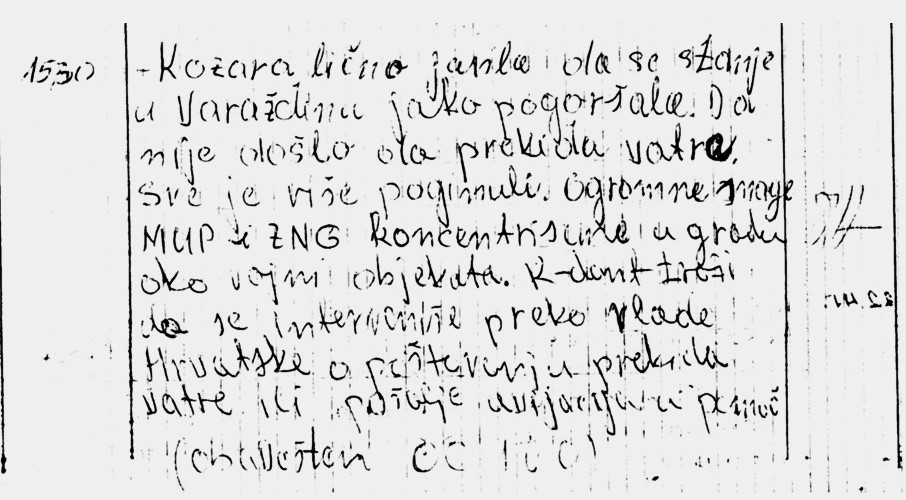 1530
- Kozara lično javila da se stanje
u Varaždinu jako pogoršala. Da
nije došlo da prekida vatre.
Sve je više poginuli. Ogromne snage
MUP i ZNG koncentrisane u gradu
oko vojni objekata. K-dant traži
da se interveniše preko vlade
Hrvatske o poštovanju prekida
vatre ili pošalje avijaciju u pomoć
(obavešten OC